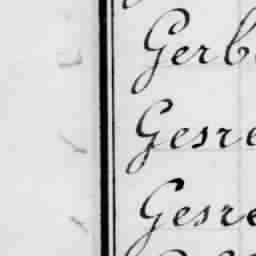 Gerb
Gesre
Gesre